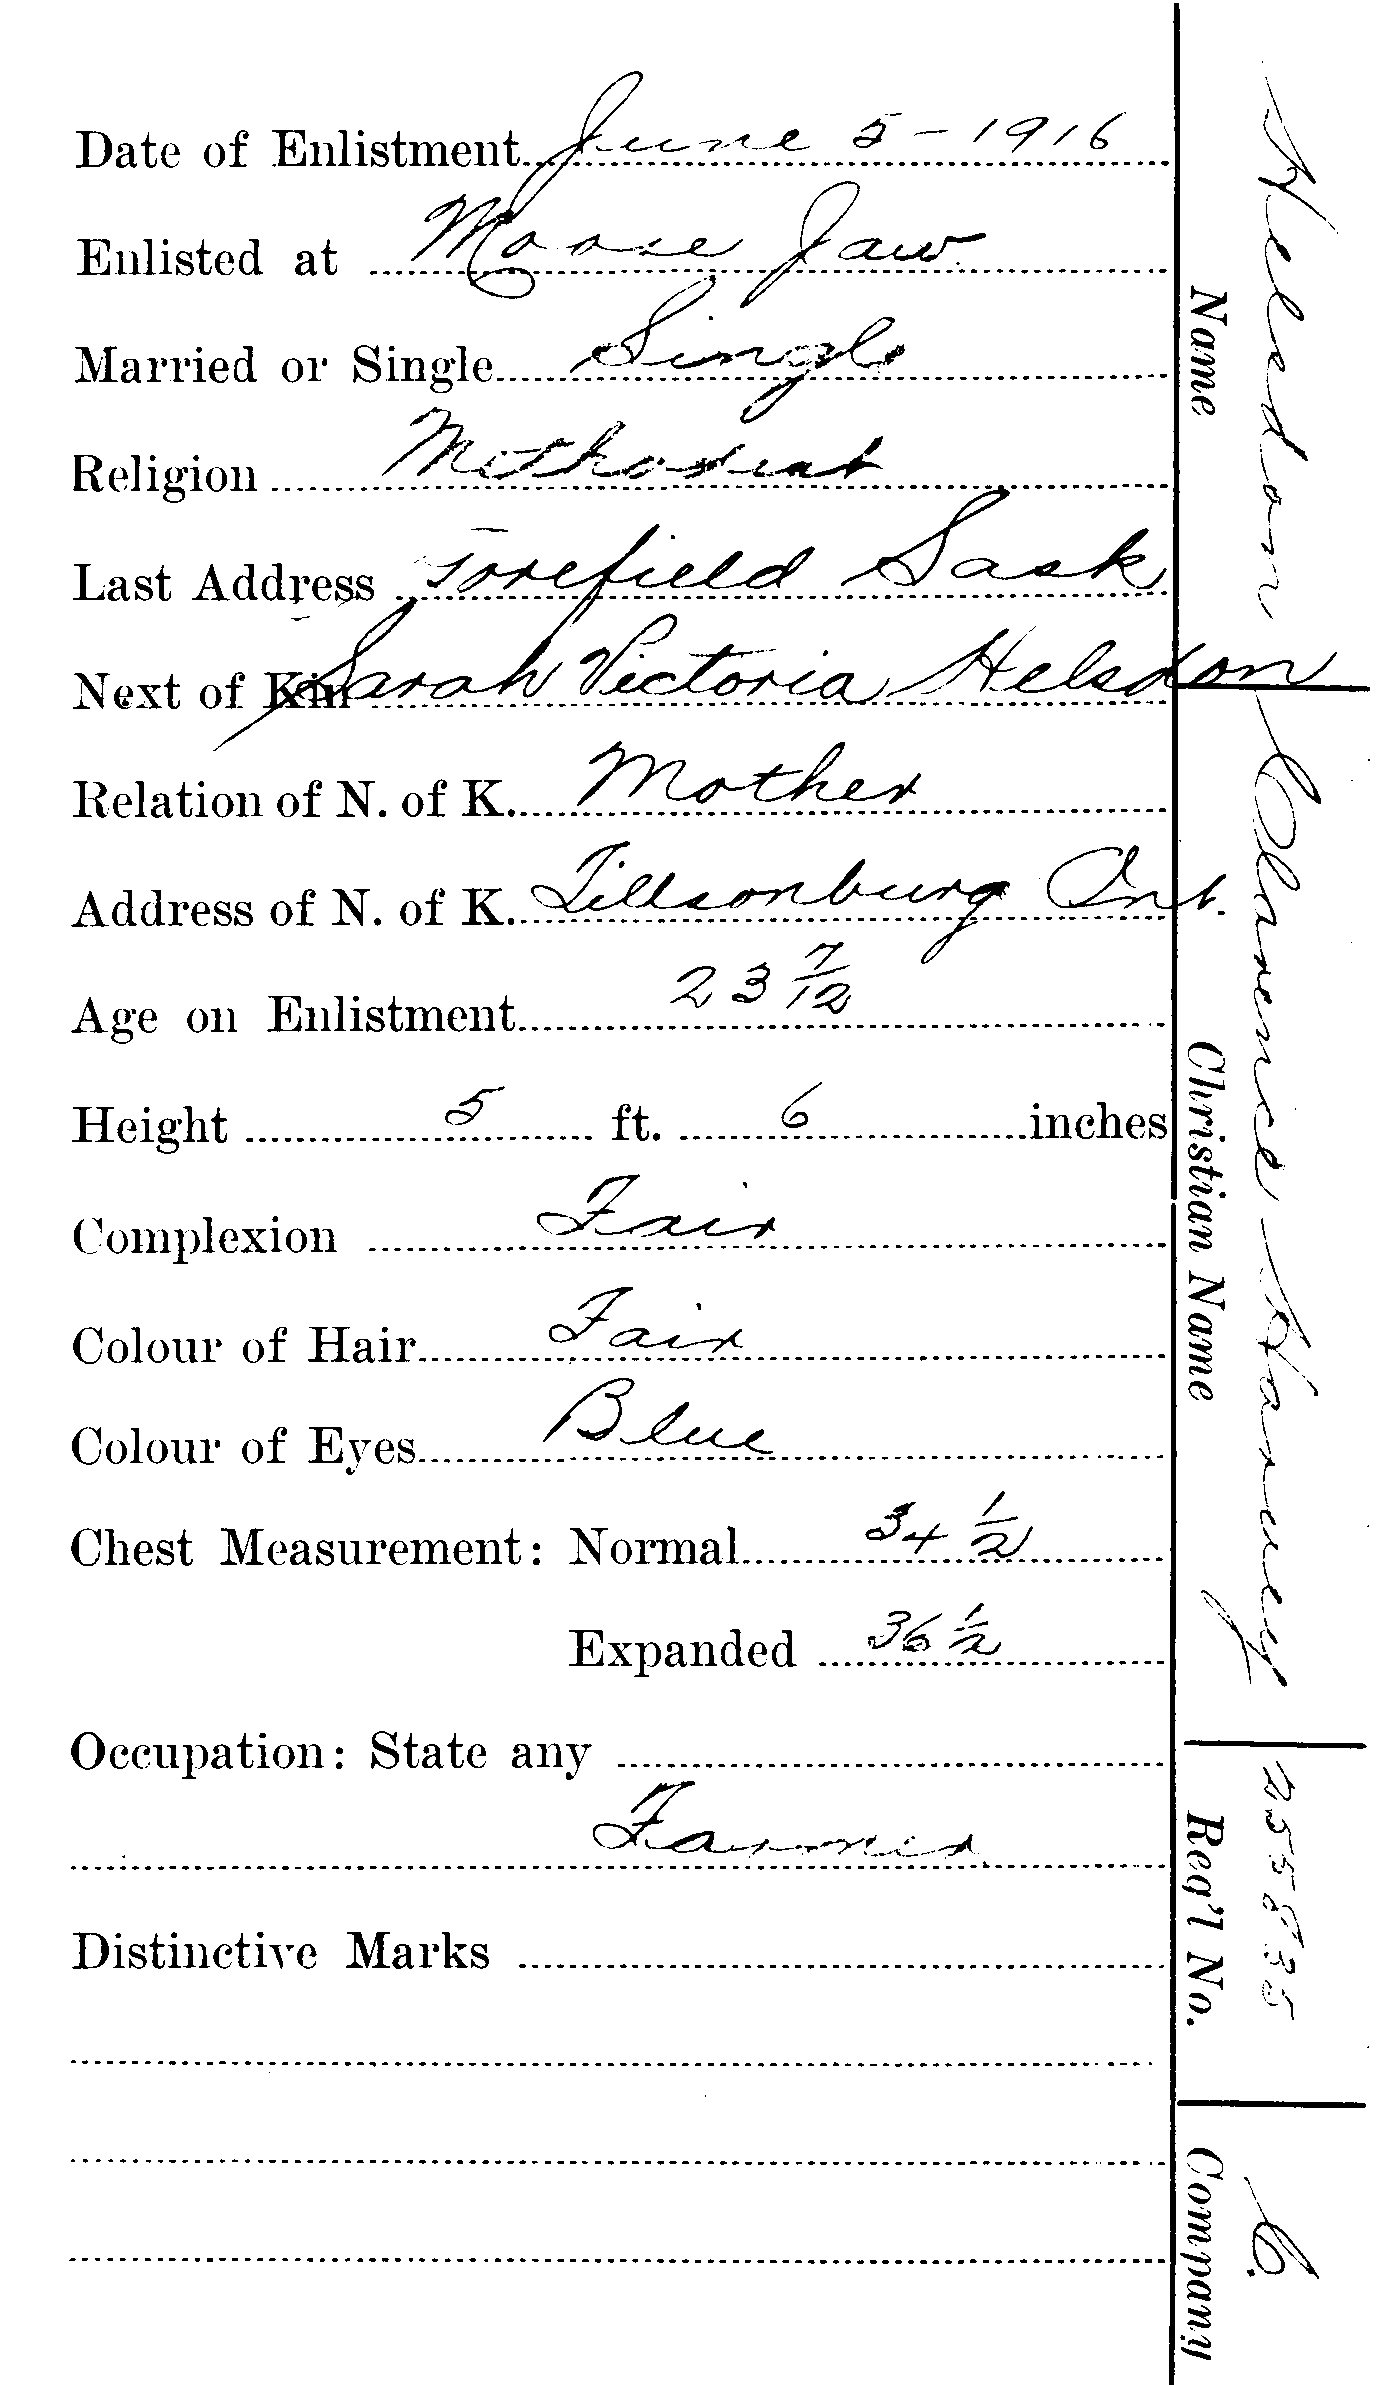 Date of Enlistment June 5 - 1916
Enlisted at Moose Jaw
Married or Single Single
Religion Methodist
Last Address Forefield Sask
Next of Kin Sarah Victoria Helsdon
Relation of N. of K. Mother
Address of N. of K. Tillsonburg Ont.
Age on Enlistment 23 7/12
Height 5 ft. 6 inches
Complexion Fair
Colour of Hair Fair
Colour of Eyes Blue
Chest Measurement: Normal 34 1/2
Expanded 36 1/2
Occupation: State any
Farmer
Distinctive Marks
Name Helsdon
Christian Name Clarence Harvey
Reg'l No. 255835
Company C.